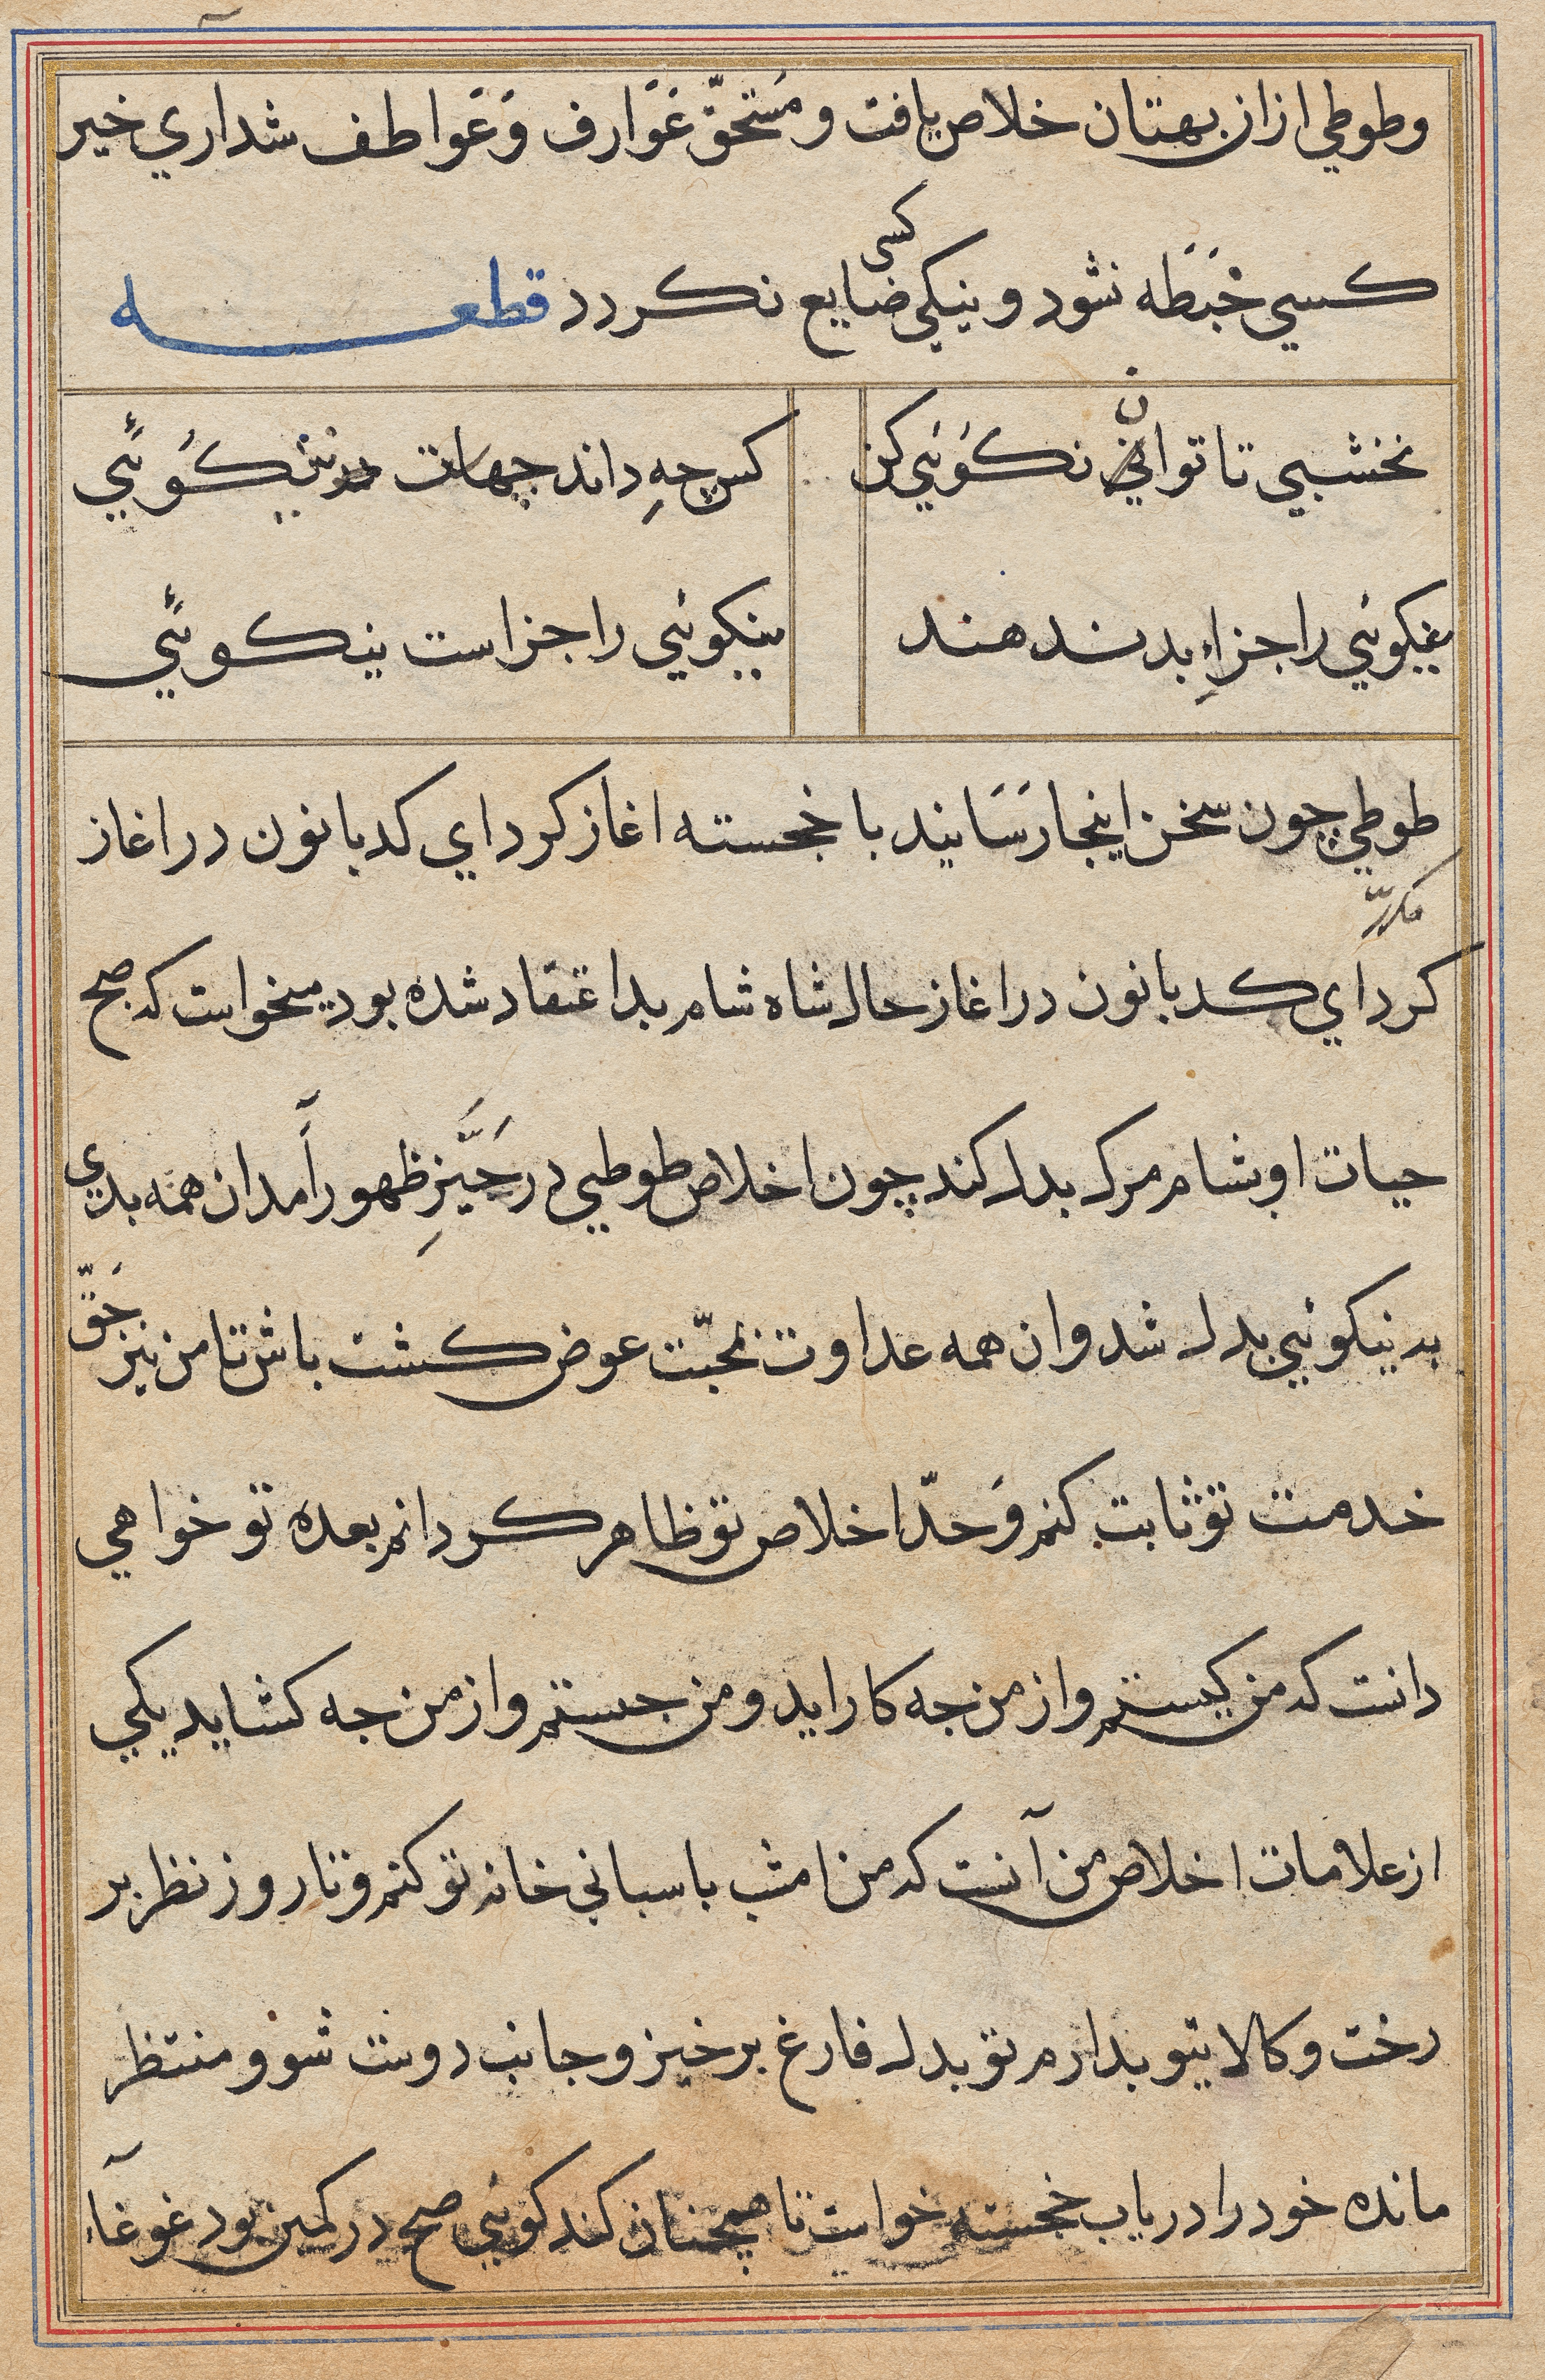 وطوطي ازان بهتان خلاص يافت و مَستحقّ عَوَارف وَعَواطف شد اري خير
كسي خَبَطه نشود و نيكي كسى ضايع نكردد قطعه
نخشبي تا تواني نكوُئي كن
كس چهِ داند جهات نيكوُئي
نيكوئي را جزاءِ بد ندهند
نيكوئي را جزاست نيكوئي
طوطي چون سخن اينجا رَسَانيد با خجسته اغاز كرد اي كدبانون در اغاز
مكرر
كرد اي كدبانون در اغاز حال شاه شام بد اعتقاد شده بود ميخواست كه صبح
حيات او بشام مرك بدل كند چون اخلاص طوطي در حَيَّزِ ظهور آمد ان همه بدي
به نيكوئي بدل شد و ان همه عداوت بمحبّت عوض كشت باش تا من نيز حَقّ
خدمت تو ثابت كنم وَ حدّ اخلاص تو ظاهر كردانم بعده تو خواهي
دانست كه من كيستم و از من جه كار ايد و من جيستم و از من جه كشايد يكي
از علامات اخلاص من آنست كه من امشب باسباني خانه تو كنم و تا روز نظر بر
رخت و كالا يتو بدارم تو بدل فارغ برخيز و جانب دوست شو و منتظر
مانده خود را درياب خجسته خواست تا همچنان كند كوئي صبح در كمين بود غوغآء